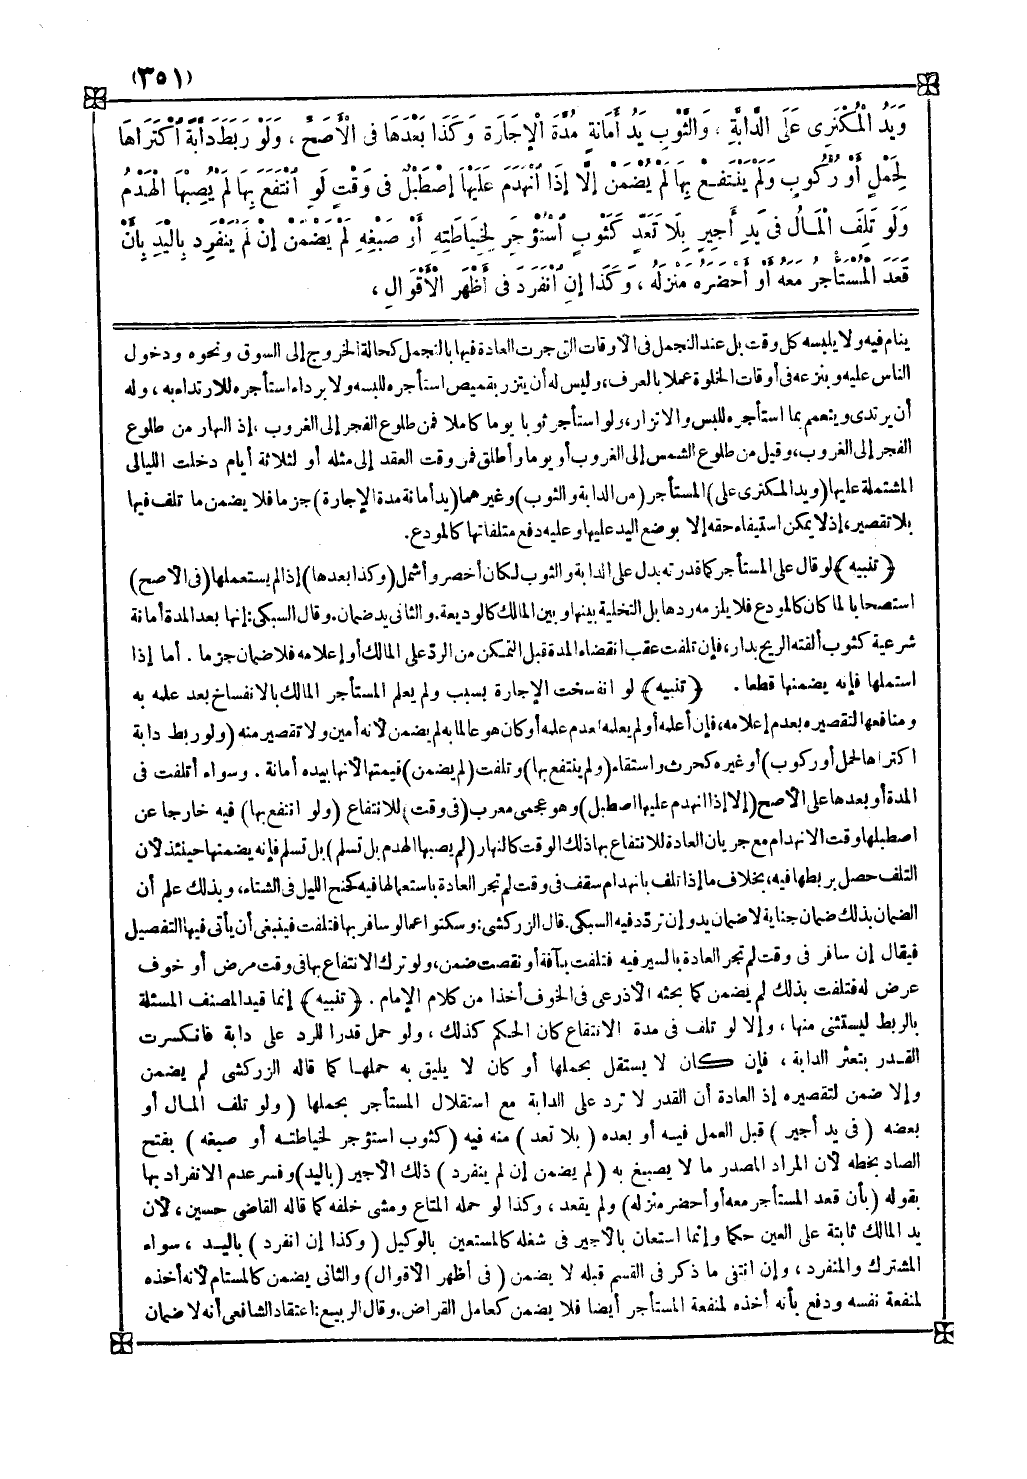 (٣٥١)
وَيَدُ الْمُكْتَرِى عَلَى الدَّابَّةِ ، وَالثَّوْبِ يَدُ أَمَانَةٍ مُدَّةَ الْإِجَارَةِ وَكَذَا بَعْدَهَا فِى الْأَصَحِّ ، وَلَوْ رَبَطَ دَابَّةً اكْتَرَاهَا
لِحَمْلٍ أَوْ رُكُوبٍ وَلَمْ يَنْتَفِعْ بِهَا لَمْ يَضْمَنْ إِلَّا إِذَا انْهَدَمَ عَلَيْهَا إِصْطَبْلٌ فِى وَقْتٍ لَوِ انْتَفَعَ بِهَا لَمْ يُصِبْهَا الْهَدْمُ
وَلَوْ تَلِفَ الْمَالُ فِى يَدِ أَجِيرٍ بِلَا تَعَدٍّ كَثَوْبٍ اسْتُؤْجِرَ لِخِيَاطَتِهِ أَوْ صَبْغِهِ لَمْ يَضْمَنْ إِنْ لَمْ يَنْفَرِدْ بِالْيَدِ بِأَنْ
قَعَدَ الْمُسْتَأْجِرُ مَعَهُ أَوْ أَحْضَرَهُ مَنْزِلَهُ ، وَكَذَا إِنِ انْفَرَدَ فِى أَظْهَرِ الْأَقْوَالِ ،
ينام فيه ولا يلبسه كل وقت بل عند التجمل فى الأوقات التى جرت العادة فيها بالتجمل كحالة الخروج إلى السوق ونحوه ودخول
الناس عليه وينزعه فى أوقات الخلوة عملا بالعرف، وليس له أن يتزر بقميص استأجره للبسه ولا برداء استأجره للارتداء به ، وله
أن يرتدى ويتعمم بما استأجره للبس والاتزار، ولو استأجر ثوبا يوما كاملا فمن طلوع الفجر إلى الغروب ، إذ النهار من طلوع
الفجر إلى الغروب، وقيل من طلوع الشمس إلى الغروب أو يوما وأطلق فمن وقت العقد إلى مثله أو لثلاثة أيام دخلت الليالى
المشتملة عليها (ويد المكترى على) المستأجر (من الدابة والثوب) وغيرهما (يد أمانة مدة الإجارة) جزما فلا يضمن ما تلف فيها
بلا تقصير، إذ لا يمكن استيفاء حقه إلا بوضع اليد عليها وعليه دفع متلفاتها كالمودع.
﴿تنبيه﴾ لو قال على المستأجر كما قدرته بدل على الدابة والثوب لكان أخصر وأشمل (وكذا بعدها) إذا لم يستعملها (فى الأصح)
استصحابا لما كان كالمودع فلا يلزمه ردها بل التخلية بينها وبين المالك كالوديعة. والثانى يد ضمان. وقال السبكى: إنها بعد المدة أمانة
شرعية كثوب ألقته الريح بدار، فإن تلفت عقب انقضاء المدة قبل التمكن من الردّ على المالك أو إعلامه فلا ضمان جزما . أما إذا
استعملها فإنه يضمنها قطعا . ﴿تنبيه﴾ لو انفسخت الإجارة بسبب ولم يعلم المستأجر المالك بالانفساخ بعد علمه به
ومنافعها لتقصيره بعدم إعلامه، فإن أعلمه أو لم يعلمه لعدم علمه أو كان هو عالما به لم يضمن لأنه أمين ولا تقصير منه (ولو ربط دابة
اكتراها لحمل أو ركوب) أو غيره كحرث واستقاء (ولم ينتفع بها) وتلفت (لم يضمن) قيمتها لأنها بيده أمانة . وسواء أتلفت فى
المدة أو بعدها على الأصح (إلا إذا انهدم عليها اصطبل) وهو عجمى معرب (فى وقت) للانتفاع (لو انتفع بها) فيه خارجا عن
اصطبلها وقت الانهدام مع جريان العادة للانتفاع بها ذلك الوقت كالنهار (لم يصبها الهدم بل تسلم) بل تسلم فإنه يضمنها حينئذ لأن
التلف حصل بربطها فيه، بخلاف ما إذا تلف بانهدام سقف فى وقت لم تجر العادة باستعمالها فيه كجنح الليل فى الشتاء ، وبذلك علم أن
الضمان بذلك ضمان جناية لا ضمان يد وإن تردّد فيه السبكى. قال الزركشى: وسكتوا عما لو سافر بها فتلفت فينبغى أن يأتى فيها التفصيل
فيقال إن سافر فى وقت لم تجر العادة بالسير فيه فتلفت بآفة أو نقصت ضمن، ولو ترك الانتفاع بها فى وقت مرض أو خوف
عرض له فتلفت بذلك لم يضمن كما بحثه الأذرعى فى الخوف أخذا من كلام الإمام . ﴿تنبيه﴾ إنما قيد المصنف المسئلة
بالربط ليستثنى منها ، وإلا لو تلف فى مدة الانتفاع كان الحكم كذلك ، ولو حمل قدرا للرد على دابة فانكسرت
القدر بتعثر الدابة ، فإن كان لا يستقل بحملها أو كان لا يليق به حملها كما قاله الزركشى لم يضمن
وإلا ضمن لتقصيره إذ العادة أن القدر لا ترد على الدابة مع استقلال المستأجر بحملها (ولو تلف المال أو
بعضه (فى يد أجير) قبل العمل فيه أو بعده (بلا تعد) منه فيه (كثوب استؤجر لخياطته أو صبغه) بفتح
الصاد بخطه لأن المراد المصدر ما لا يصبغ به (لم يضمن إن لم ينفرد) ذلك الأجير (باليد) وفسر عدم الانفراد بها
بقوله (بأن قعد المستأجر معه أو أحضر منزله) ولم يقعد ، وكذا لو حمله المتاع ومشى خلفه كما قاله القاضى حسين ، لأن
يد المالك ثابتة على العين حكما وإنما استعان بالأجير فى شغله كالمستعين بالوكيل (وكذا إن انفرد) باليد ، سواء
المشترك والمنفرد ، وإن انتفى ما ذكر فى القسم قبله لا يضمن (فى أظهر الأقوال) والثانى يضمن كالمستام لأنه أخذه
لمنفعة نفسه ودفع بأنه أخذه لمنفعة المستأجر أيضا فلا يضمن كعامل القراض. وقال الربيع: اعتقاد الشافعى أنه لا ضمان